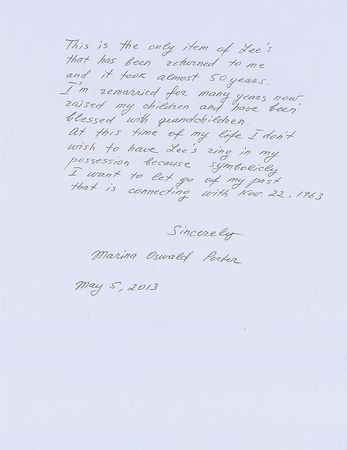 This is the only item of Lee's
that has been returned to me
and it took almost 50 years.
I'm remarried for many years now
raised my children and have been
blessed with grandchildren.
At this time of my life I don't
wish to have Lee's ring in my
possession becwuse symbolicly
I want to let go of my past
that is connecting with Nov. 22, 1963
Sincerely
Marina Oswald Porter
May 5, 2013